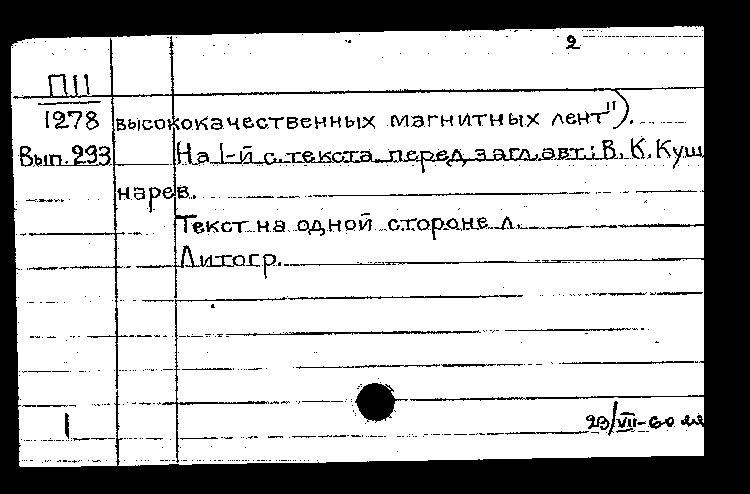 2
П11
1278
Вып. 293
высококачественных магнитных лент").
На 1-й с. текста перед загл. авт.: В. К. Куш
нарев.
Текст на одной стороне л.
Литогр.
1
23/VII-60